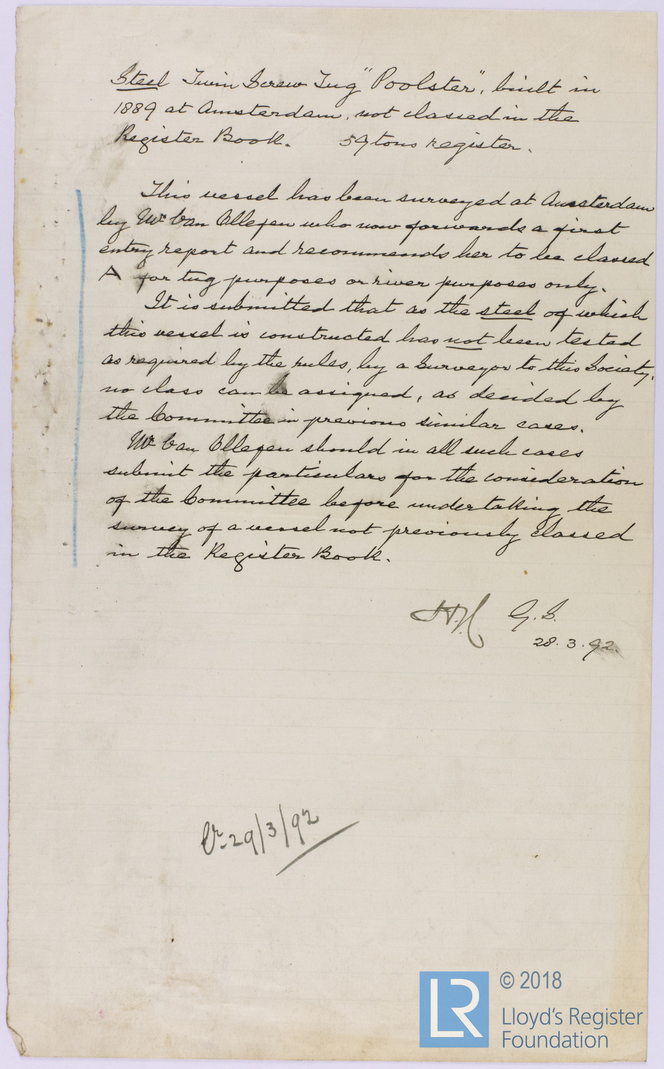 Steel Twin Screw Tug "Poolster", built in
1889 at Amsterdam, not classed in the
Register Book. 59 tons register.
This vessel has been surveyed at Amsterdam
by Mr Van Ollefen who now forwards a first
entry report and recommends her to be classed
A for tug purposes or river purposes only.
It is submitted that as the steel of which
this vessel is constructed has not been tested
as required by the rules, by a Surveyor to this Society,
no class can be assigned, as decided by
the Committee in previous similar cases.
Mr Van Ollefen should in all such cases
submit the particulars for the consideration
of the Committee before undertaking the
survey of a vessel not previously classed
in the Register Book.
G.S.
28.3.92.
29/3/92
LR
© 2018
Lloyd's Register
Foundation